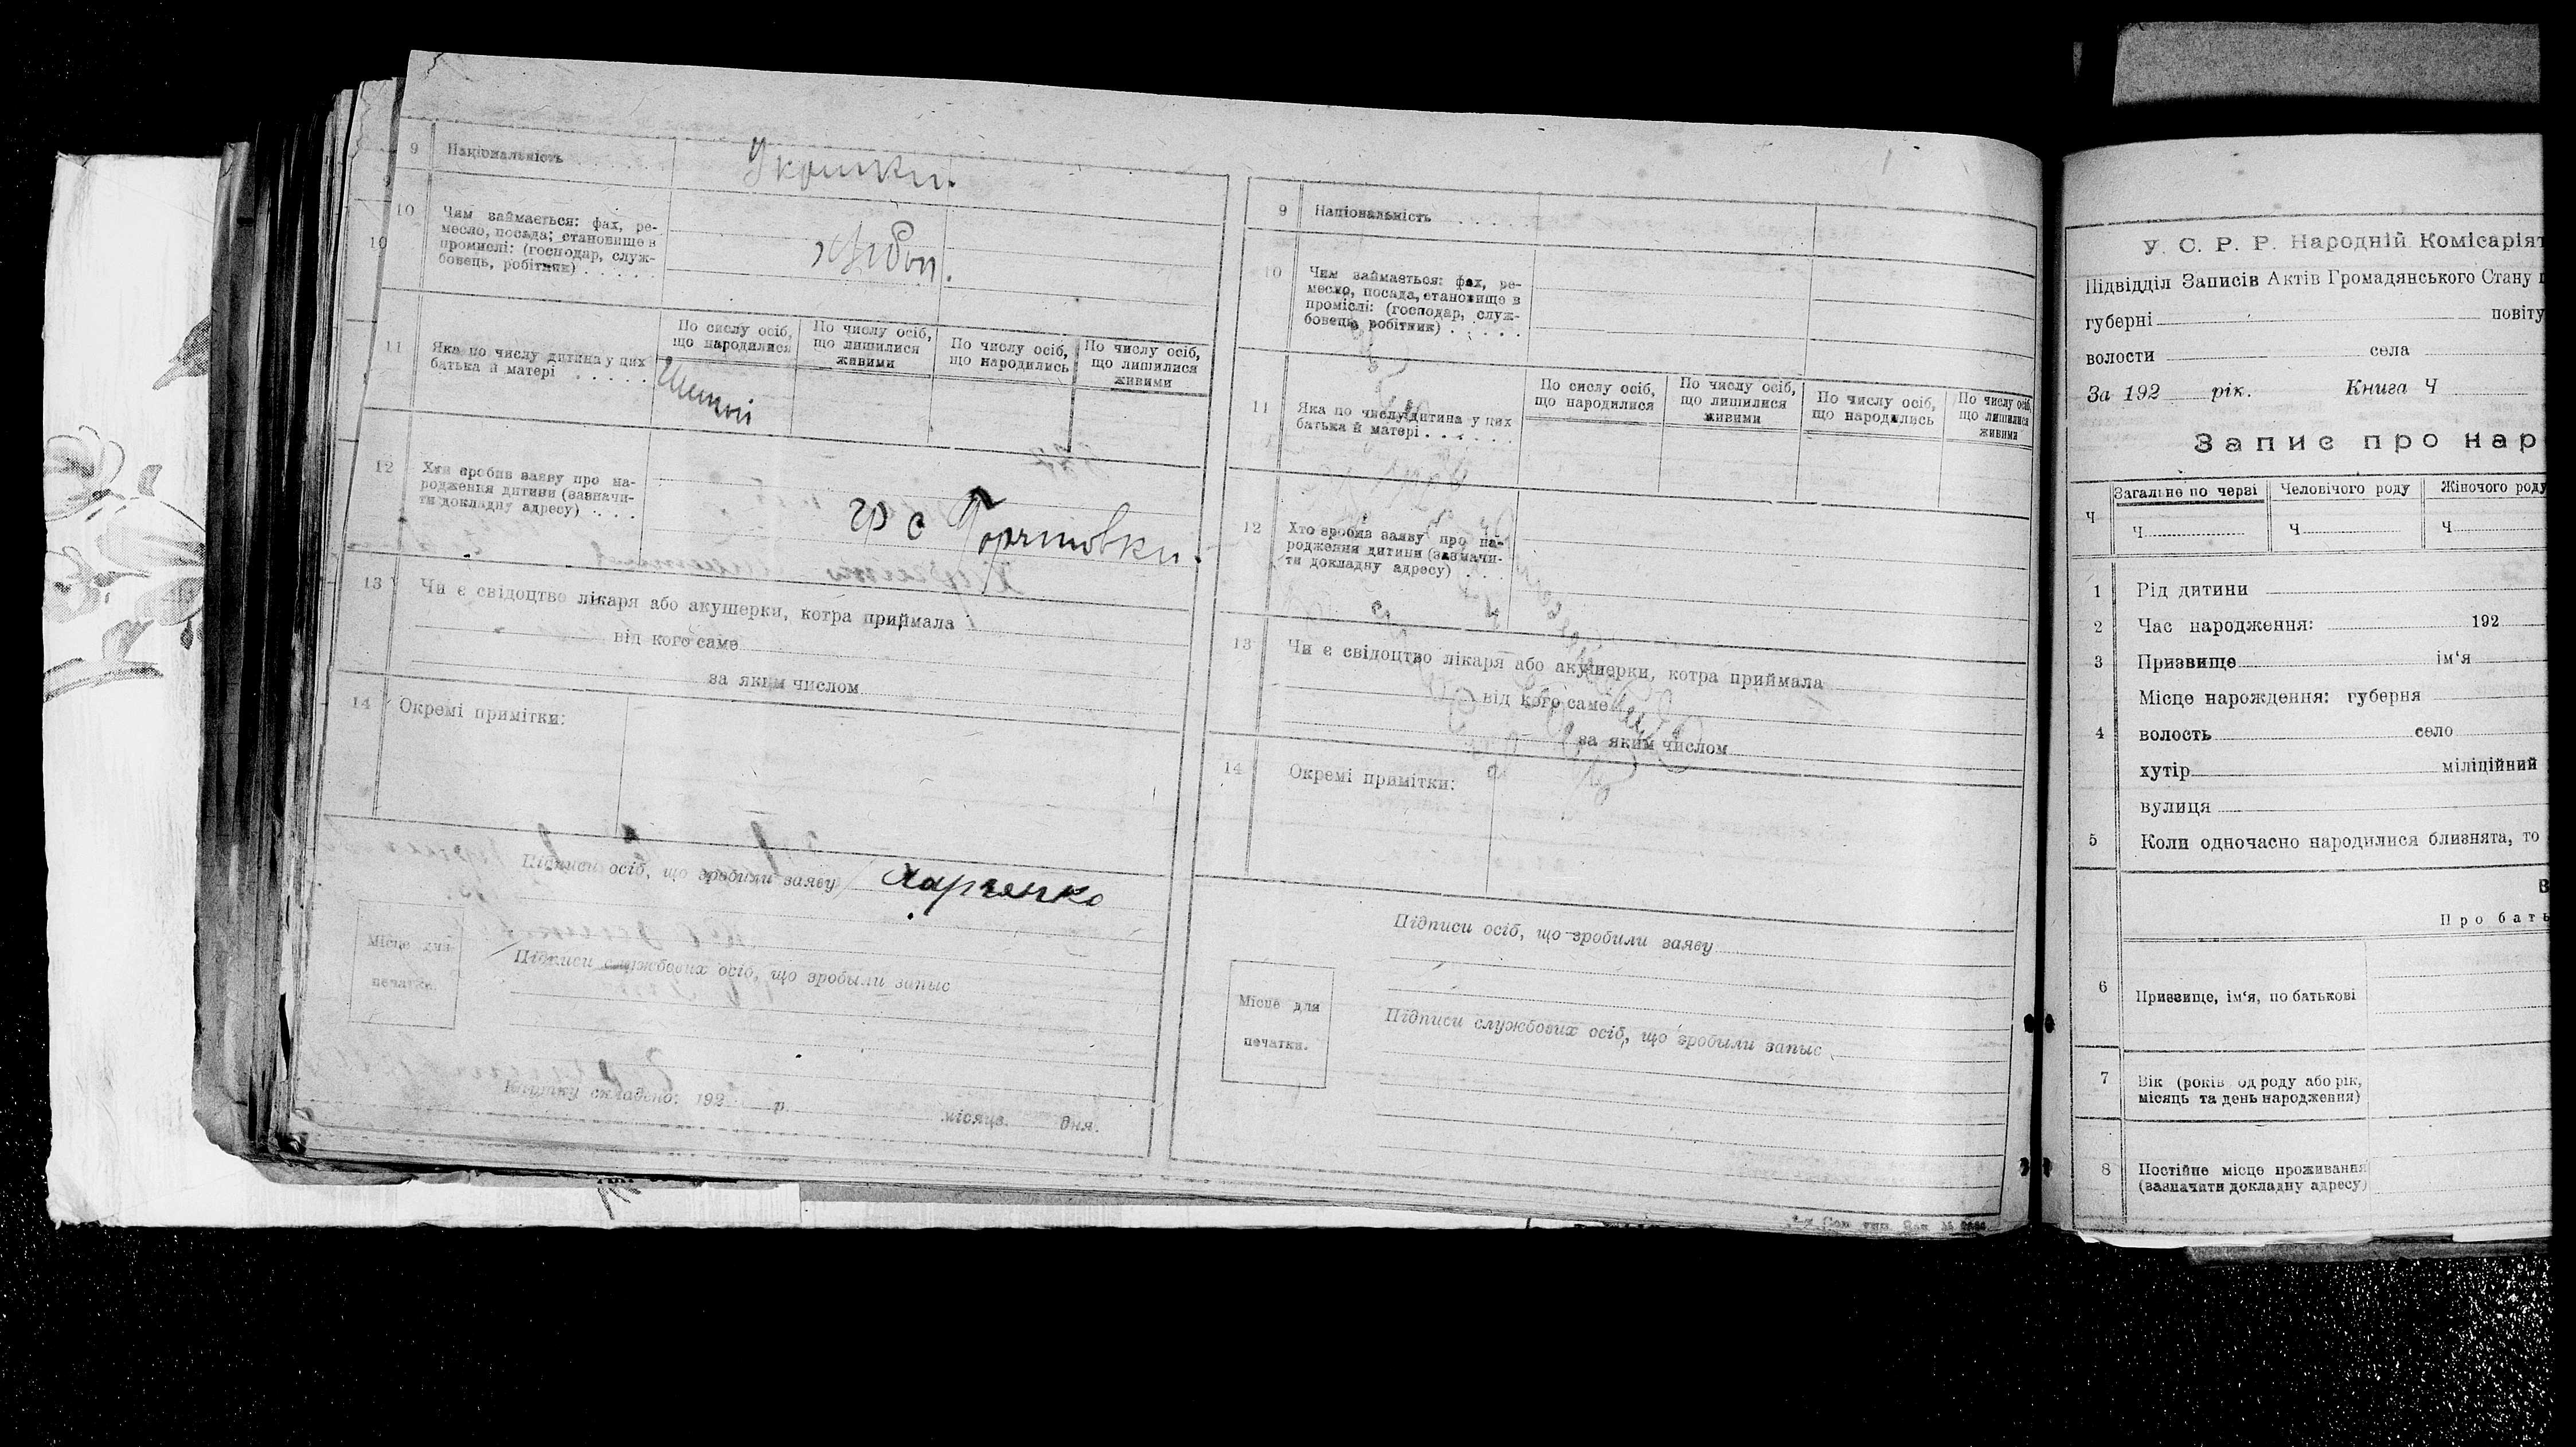 9 Національність
10 Чим займається: фах, ре-
месло, посада; становище в
промислі: (господар, служ-
бовець, робітник)
11 Яка по числу дитина у цих
батька й матері
По сислу осіб,
що народилися
По числу осіб,
що лишилися
живими
По числу осіб,
що народились
По числу осіб,
що лишилися
живими
12 Хти зробив заяву про на-
родження дитини (зазначи-
ти докладну адресу)
гр с
13 Чи є свідоцтво лікаря або акушерки, котра приймала
від кого саме
за яким числом
14 Окремі примітки:
Підписи осіб, що зробили заяву Харченко
Місце для
печатки.
Підписи службових осіб, що зробыли запыс
Книжку складено: 192 р. місяця. дня.
9 Національність
10 Чим займається: фах, ре-
месло, посада, становище в
промислі: (господар, служ-
бовець, робітник)
11 Яка по числу дитина у цих
батька й матері
По сислу осіб,
що народилися
По числу осіб,
що лишилися
живими
По числу осіб,
що народились
По числу осіб,
що лишилися
живими
12 Хто зробив заяву про на-
родження дитини (зазначи-
ти докладну адресу)
13 Чи є свідоцтво лікаря або акушерки, котра приймала
від кого саме
за яким числом
14 Окремі примітки:
Підписи осіб, що зробили заяву
Місце для
печатки.
Підписи службових осіб, що зробыли запыс
У. С. Р. Р. Народній Комісарія
Підвідділ Записів Актів Громадянського Стану
губерні повіту
волости села
За 192 рік. Книга Ч
Запис про нар
Ч Загальне по черві Человічого роду Жіночого роду
Ч Ч Ч
1 Рід дитини
2 Час народження: 192
3 Призвище ім‘я
Місце нарождення: губерня
4 волость село
хутір міліційний
вулиця
5 Коли одночасно народилися близнята, то
В
Про бать
6 Призвище, ім‘я, по батькові
7 Вік (років од роду або рік,
місяць та день народження)
8 Постійне місце проживання
(зазначити докладну адресу)